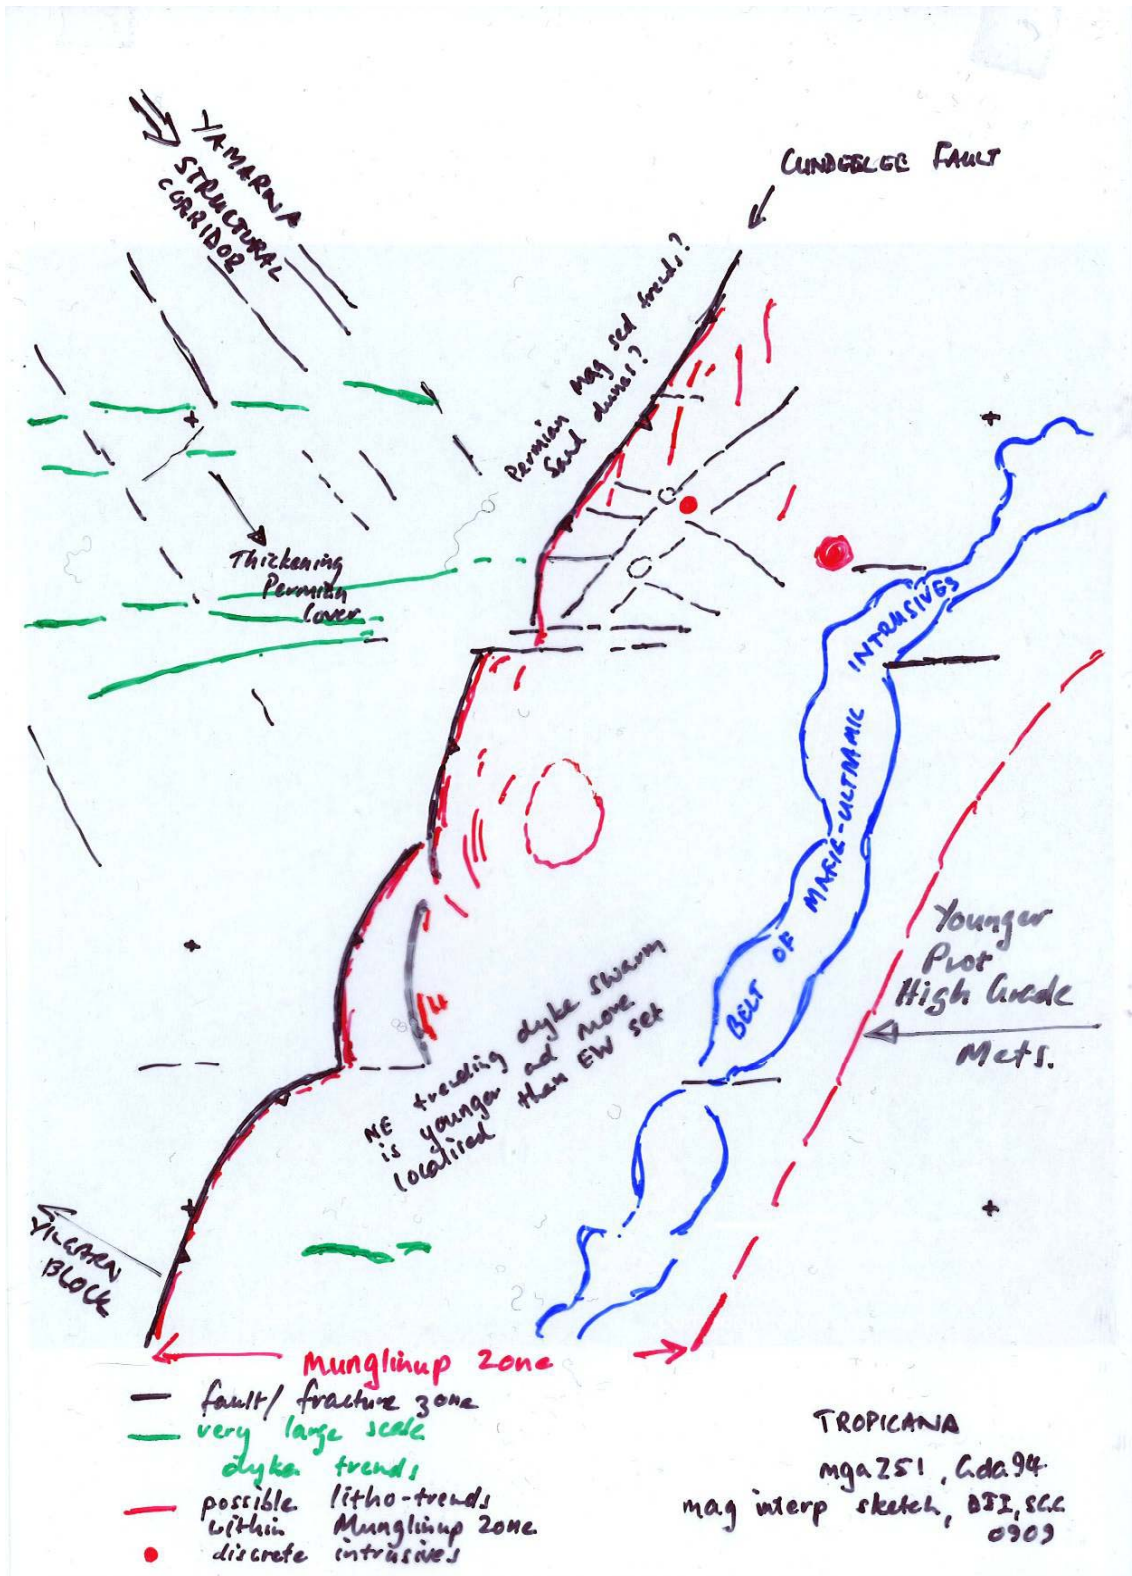 YAMARNA
STRUCTURAL
CORRIDOR
CUNDEELEE FAULT
Permian mag sed trends?
Sand dunes?
Thickening
Permian
Cover
BELT OF MAFIC-ULTRAMIC INTRUSIVES
Younger
Prot
High Grade
Mets.
NE trending dyke swarm
is younger and more
localised than EW set
YILGARN
BLOCK
Munglinup Zone
fault/ fracture zone
very large scale
dyke trends
possible litho-trends
within Munglinup Zone
discrete intrusives
TROPICANA
mga251, Gda94
mag interp sketch,
0909